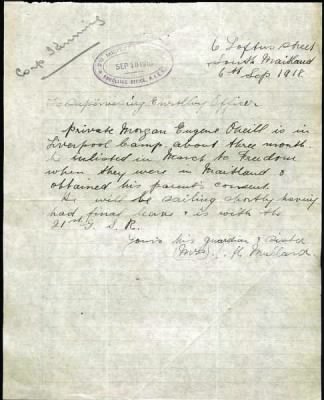 6 Loftus Street
South Maitland
6th Sep 1918
SEP 10 1918
To Supervising Enrolling Officer
Private Morgan Eugene O'Neill is in
Liverpool Camp about three month
enlisted in March to Freedom
when they were in Maitland &
obtained his parent's consent.
He will be sailing shortly having
had final leave & is with the
21st G. S. R.
Yours his guardian & sister
(Mrs) H. Mullard